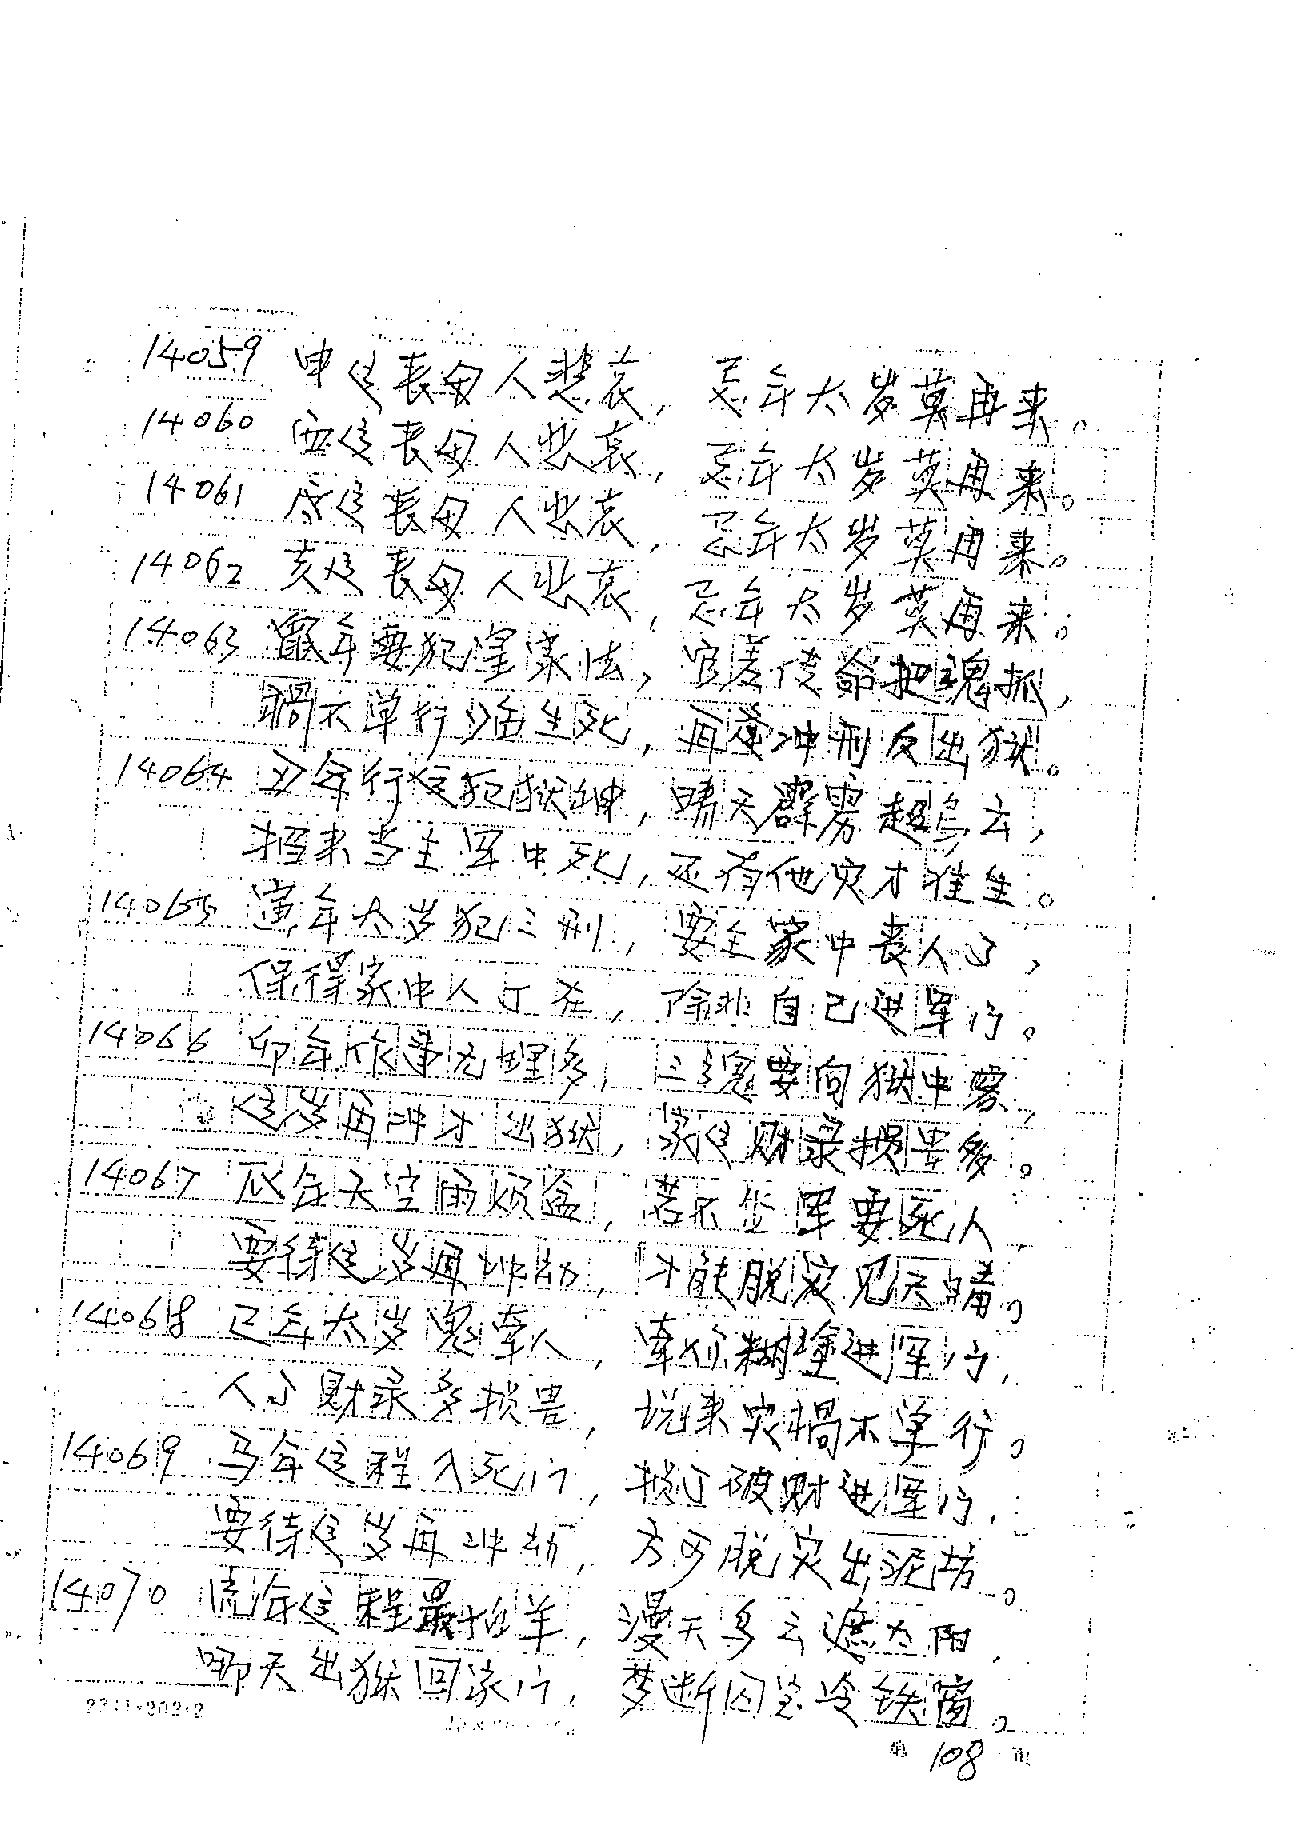 14059 申运丧母人悲哀，忌年太岁莫再来。
14060 酉运丧母人悲哀，忌年太岁莫再来。
14061 戌运丧母人悲哀，忌年太岁莫再来。
14062 亥运丧母人悲哀，忌年太岁莫再来。
14063 鼠年要犯皇家法，官差传命把魂抓，
祸不单行生死，再逢冲刑反出狱。
14064 丑年行运犯狱神，晴天霹雳起乌云，
招来当主牢中死，还有他灾才往生。
14065 寅年太岁犯三刑，要主家中丧人口，
保得家中人丁在，除非自己进牢门。
14066 卯年作事无理多，三魂要向狱中寥，
运岁再冲才出狱，家运财录损害多。
14067 辰年天空雨倾盆，若不坐牢要死人，
要待运岁再冲劫，才能脱灾见天晴。
14068 巳年太岁鬼牵人，牵你糊涂进牢门，
人口财录多损害，说来灾祸不单行。
14069 马年运程入死门，损丁破财进牢门，
要待运岁再冲劫，方可脱灾出泥坊。
14070 流年运程最怕羊，漫天乌云遮太阳，
哪天出狱回家门，梦断囚室冷铁窗。
2211-202-2
第 108 页